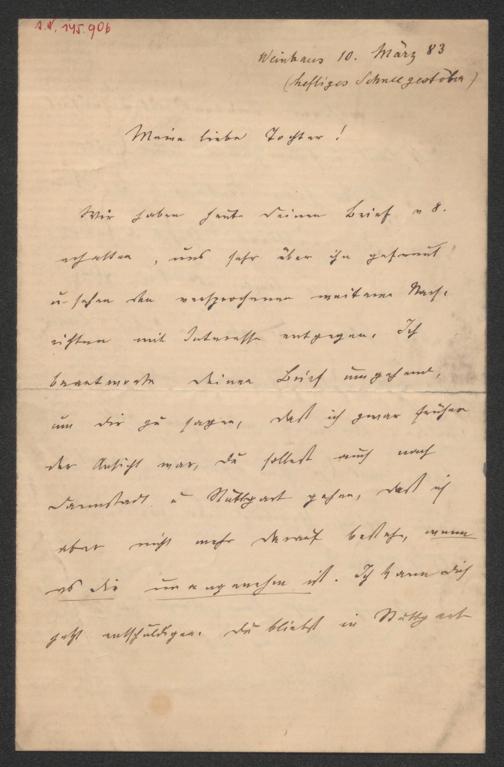 I.N. 145.906
Weinhaus 10. März 83
(heftiges Schneegestöber)
Meine liebe Tochter!
Wir haben heute Deinen Brief v 8.
erhalten, uns sehr über ihn gefreut
u sehen den versprochenen weiteren Nach-
richten mit Interesse entgegen. Ich
beantworte Deinen Brief umgehend,
um Dir zu sagen, daß ich zwar früher
der Ansicht war, Du sollest auch nach
Darmstadt u Stuttgart gehen, daß ich
aber nicht mehr darauf bestehe, wenn
es Dir unangenehm ist. Ich kann Dich
jetzt entschuldigen. Du bliebst in Stuttgart